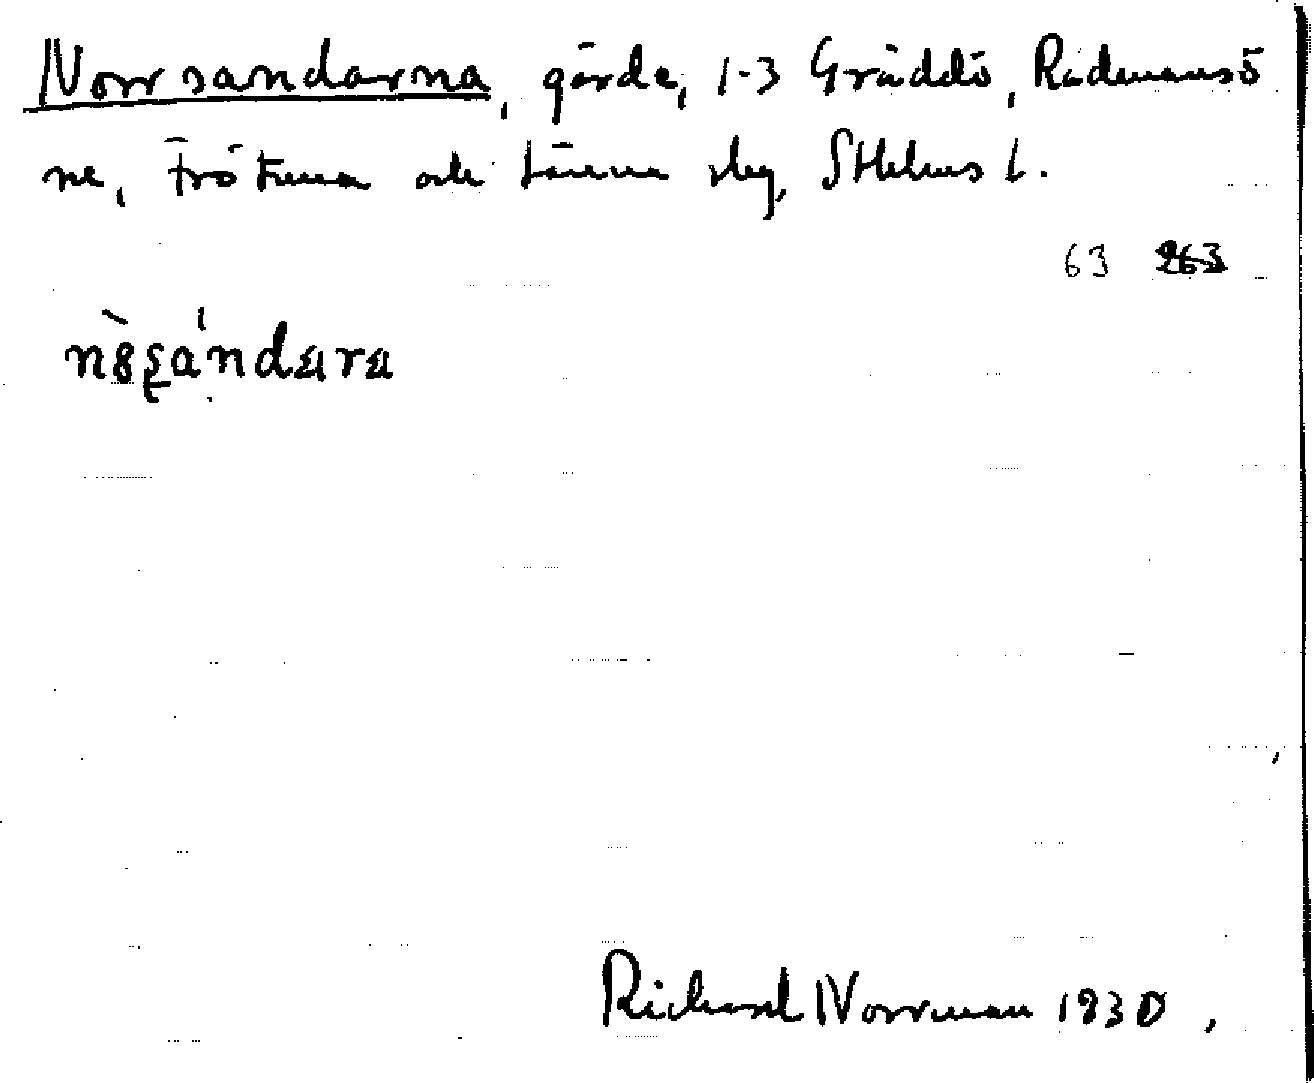 Norrsandarna, gärde, 1-3 Gräddö, Rådmansö
sn, Frötuna och Länna slg, Sthlms l.
63 263
Richard Norrman 1930.